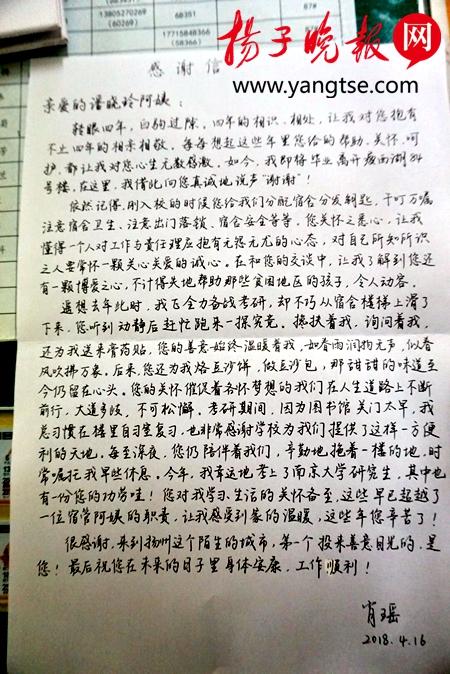 13805270269
(60269)
6B351
87#
17715848366
扬子晚报网
www.yangtse.com
感谢信
亲爱的潘晓玲阿姨：
转眼四年，白驹过隙。四年的相识、相处，让我对您抱有
不止四年的相亲相敬。每每想起这些年里您给的帮助、关怀、呵
护，都让我对您心生无数感激。如今，我即将毕业离开瘦西湖84
号楼，在这里，我借此向您真诚地说声“谢谢”！
依然记得，刚入校的时候您给我们分配宿舍分发钥匙，千叮万嘱
注意宿舍卫生、注意出门落锁、宿舍安全等等，您关怀之悉心，让我
懂得一个人对工作与责任理应抱有无怨无尤的心态，对自己所知所识
之人要常怀一颗关心关爱的诚心。在和您的交谈中，让我了解到您还
有一颗博爱之心，不计得失地帮助那些贫困地区的孩子，令人动容。
遥想去年此时，我正全力备战考研，却不巧从宿舍楼梯上滑了
下来，您听到动静后赶忙跑来一探究竟。搀扶着我，询问着我，
还为我送来膏药贴，您的善意始终温暖着我，如春雨润物无声，似春
风吹拂万象。后来，您还为我烙豆沙饼，做豆沙包，那甜甜的味道至
今仍留在心头。您的关怀催促着各怀梦想的我们在人生道路上不断
前行，大道多歧，不可松懈。考研期间，因为图书馆关门太早，我
总习惯在楼里自习室复习，也非常感谢学校为我们提供了这样一方便
利的天地。每至深夜，您仍陪伴着我们，辛勤地拖着一楼的地，时
常嘱托我早些休息。今年，我幸运地考上了南京大学研究生，其中也
有一份您的功劳哇！您对我学习、生活的关怀备至，这些早已超越了
一位宿管阿姨的职责，让我感受到家的温暖，这些年您辛苦了！
很感谢，来到扬州这个陌生的城市，第一个投来善意目光的，是
您！最后祝您在未来的日子里身体安康，工作顺利！
肖瑶
2018.4.16